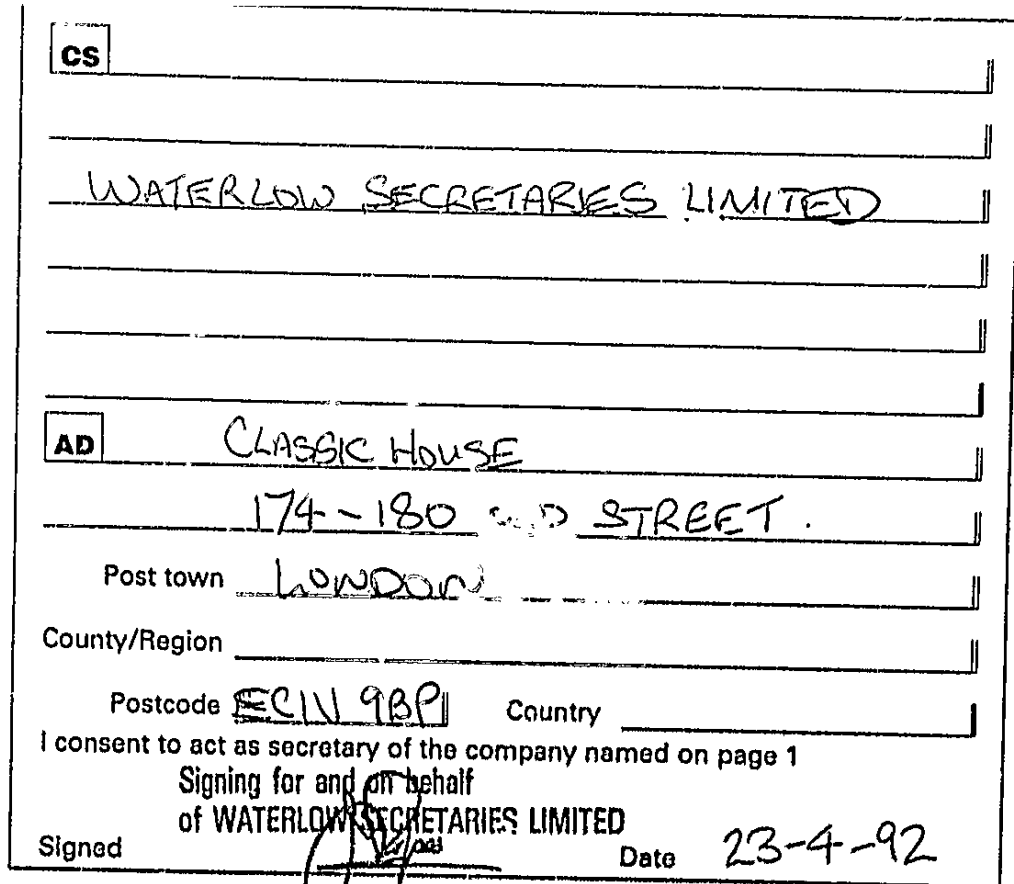 CS
WATERLOW SECRETARIES LIMITED
AD CLASSIC HOUSE
174-180 STREET.
Post town LONDON
County/Region
Postcode EC1V 9BP Country
I consent to act as secretary of the company named on page 1
Signing for and on behalf
of WATERLOW SECRETARIES LIMITED
Signed Date 23-4-92